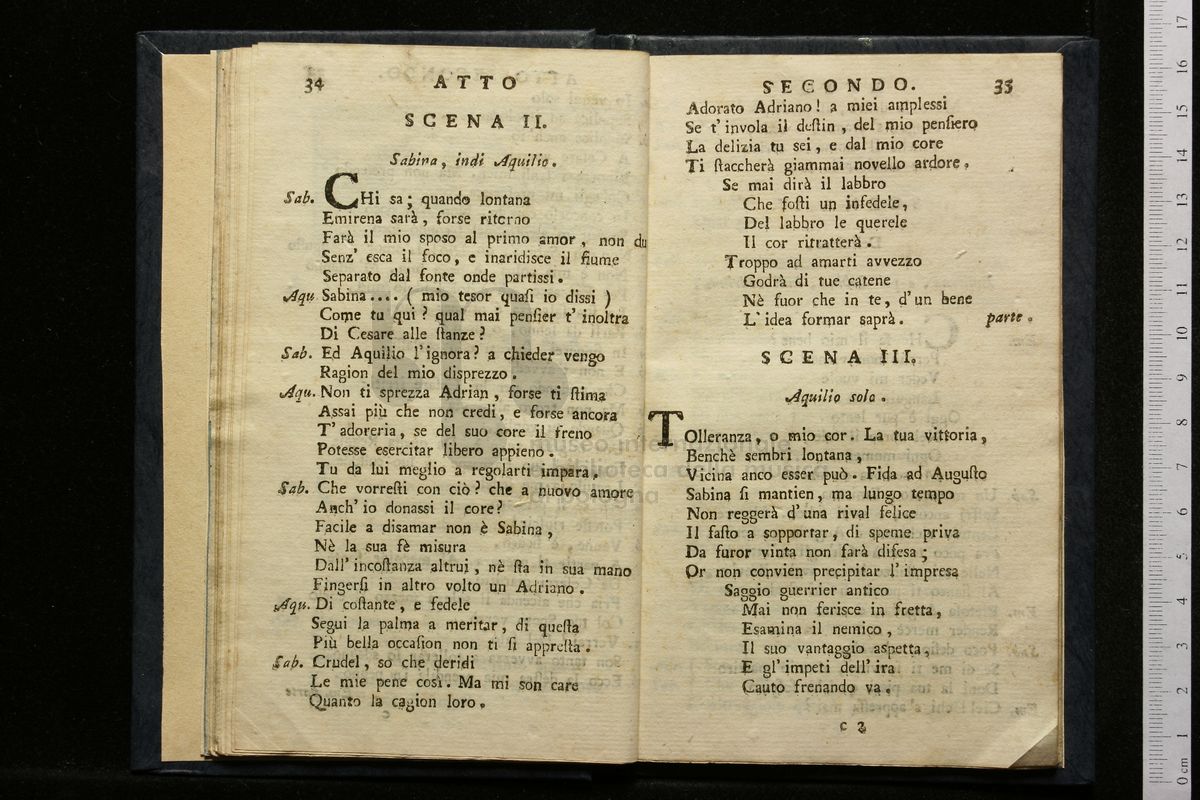 34 ATTO
SCENA II.
Sabina, indi Aquilio.
Sab. CHi sa; quando lontana
Emirena sarà, forse ritorno
Farà il mio sposo al primo amor, non du
Senz' esca il foco, e inaridisce il fiume
Separato dal fonte onde partissi.
Aqu. Sabina.... ( mio tesor quaſi io dissi )
Come tu qui? qual mai penſier t' inoltra
Di Cesare alle ſtanze?
Sab. Ed Aquilio l'ignora? a chieder vengo
Ragion del mio disprezzo.
Aqu. Non ti sprezza Adrian, forse ti ſtima
Assai più che non credi, e forse ancora
T' adoreria, se del suo core il freno
Potesse esercitar libero appieno.
Tu da lui meglio a regolarti impara.
Sab. Che vorreſti con ciò? che a nuovo amore
Anch' io donassi il core?
Facile a disamar non è Sabina,
Nè la sua fè misura
Dall' incoſtanza altrui, nè ſta in sua mano
Fingerſi in altro volto un Adriano.
Aqu. Di coſtante, e fedele
Segui la palma a meritar, di queſta
Più bella occaſion non ti ſi appreſta.
Sab. Crudel, so che deridi
Le mie pene così. Ma mi son care
Quanto la cagion loro.
SECONDO. 35
Adorato Adriano! a miei amplessi
Se t' invola il deſtin, del mio penſiero
La delizia tu sei, e dal mio core
Ti ſtaccherà giammai novello ardore.
Se mai dirà il labbro
Che foſti un infedele,
Del labbro le querele
Il cor ritratterà.
Troppo ad amarti avvezzo
Godrà di tue catene
Nè fuor che in te, d'un bene
L'idea formar saprà. parte.
SCENA III.
Aquilio solo.
TOlleranza, o mio cor. La tua vittoria,
Benchè sembri lontana,
Vicina anco esser può. Fida ad Auguſto
Sabina ſi mantien, ma lungo tempo
Non reggerà d'una rival felice
Il faſto a sopportar, di speme priva
Da furor vinta non farà difesa;
Or non convien precipitar l'impresa
Saggio guerrier antico
Mai non ferisce in fretta,
Esamina il nemico,
Il suo vantaggio aspetta,
E gl' impeti dell' ira
Cauto frenando va.
C 3
museo internazionale
e biblioteca della musica
di bologna
0 cm 1 2 3 4 5 6 7 8 9 10 11 12 13 14 15 16 17